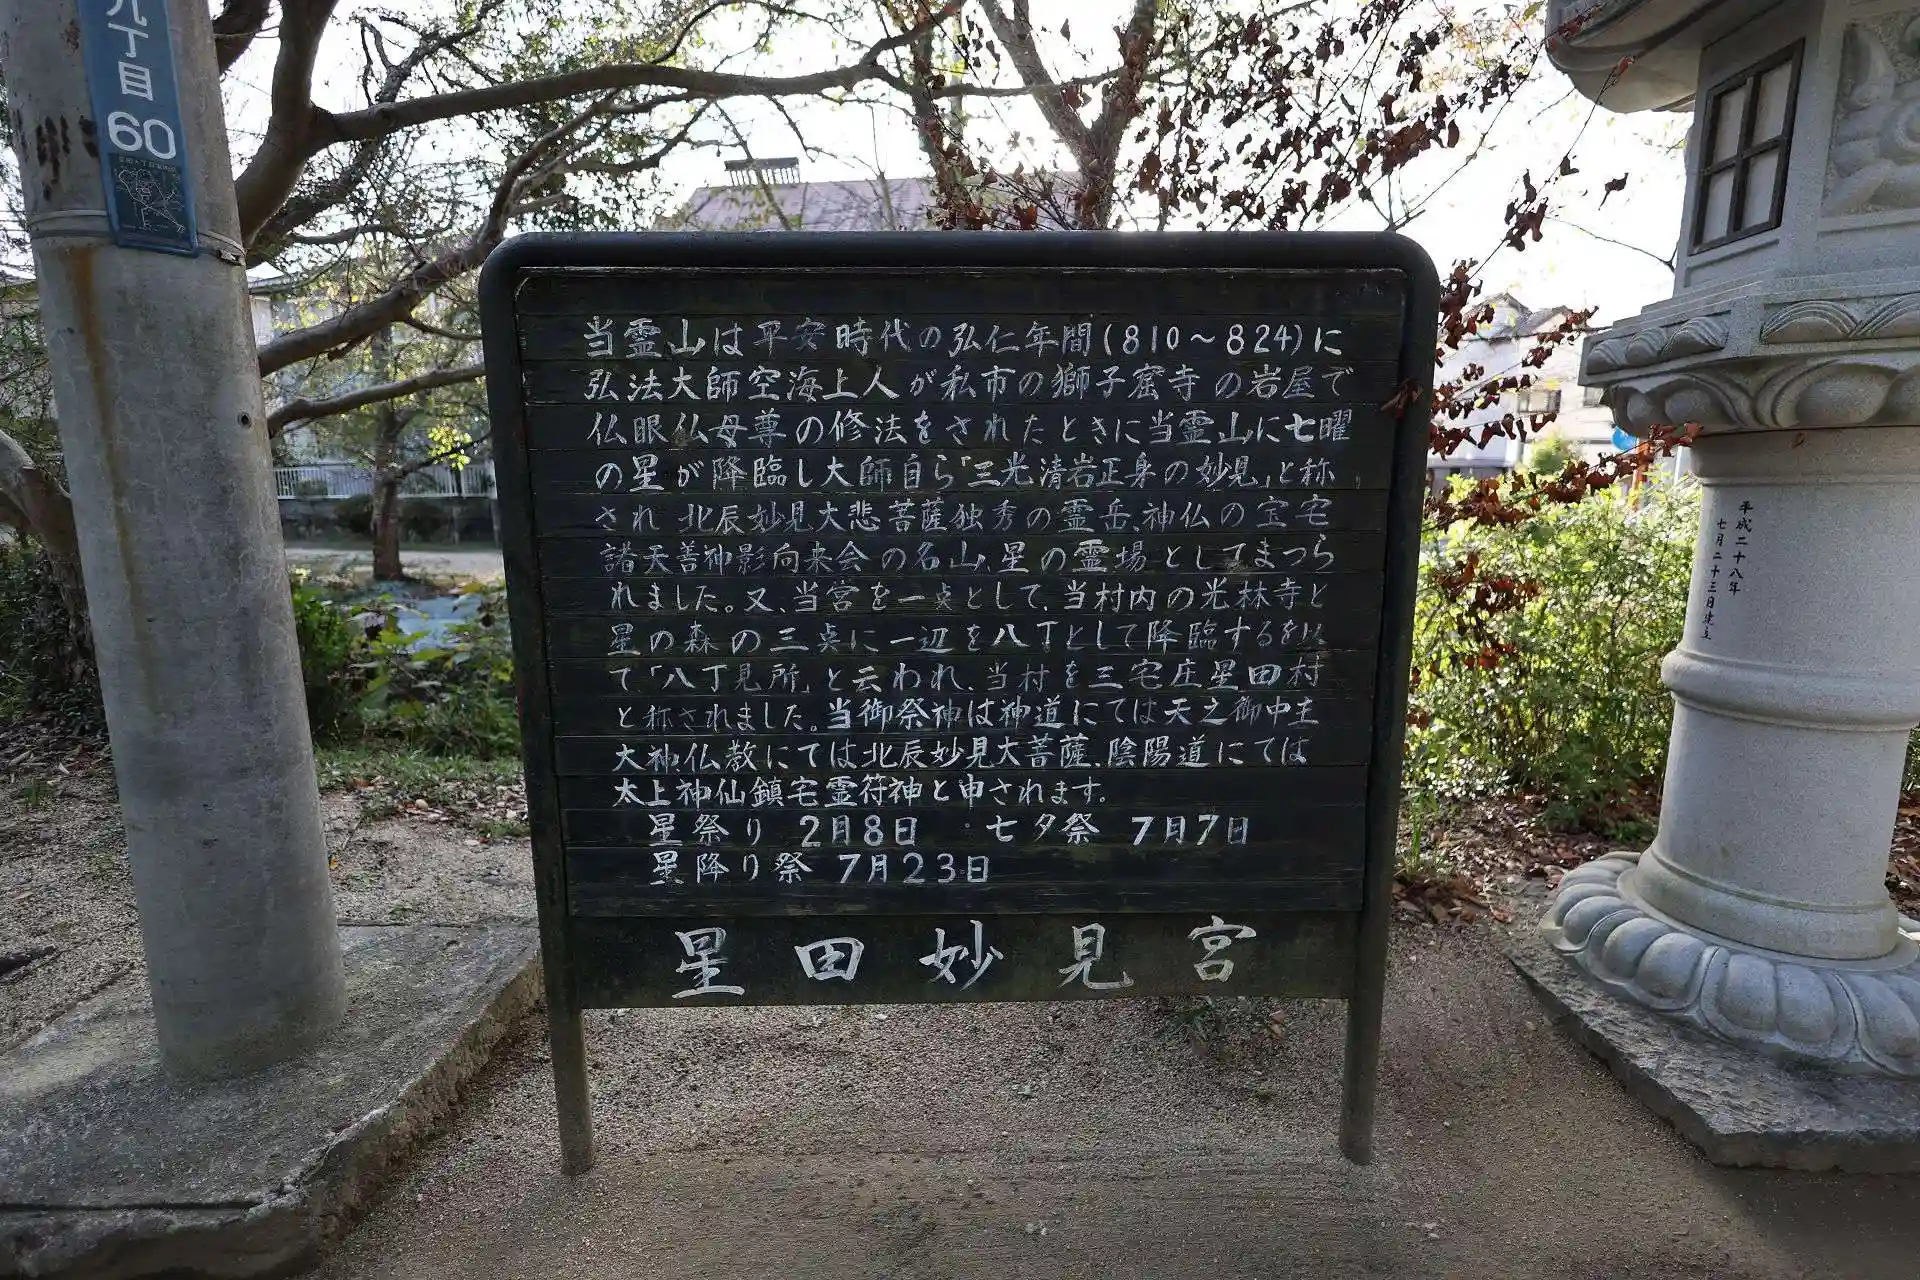 九丁目
60
当霊山は平安時代の弘仁年間(810～824)に
弘法大師空海上人が私市の獅子窟寺の岩屋で
仏眼仏母尊の修法をされたときに当霊山に七曜
の星が降臨し大師自ら「三光清岩正身の妙見」と称
され 北辰妙見大悲菩薩独秀の霊岳、神仏の宝宅
諸天善神影向来会の名山、星の霊場としてまつら
れました。又、当宮を一点として、当村内の光林寺と
星の森の三点に一辺を八丁として降臨するを以
て「八丁見所」と云われ、当村を三宅庄星田村
と称されました。当御祭神は神道にては天之御中主
大神仏教にては北辰妙見大菩薩、陰陽道にては
太上神仙鎮宅霊符神と申されます。
星祭り 2月8日 ・七夕祭 7月7日
星降り祭 7月23日
星田妙見宮
平成二十八年
七月二十三日建立